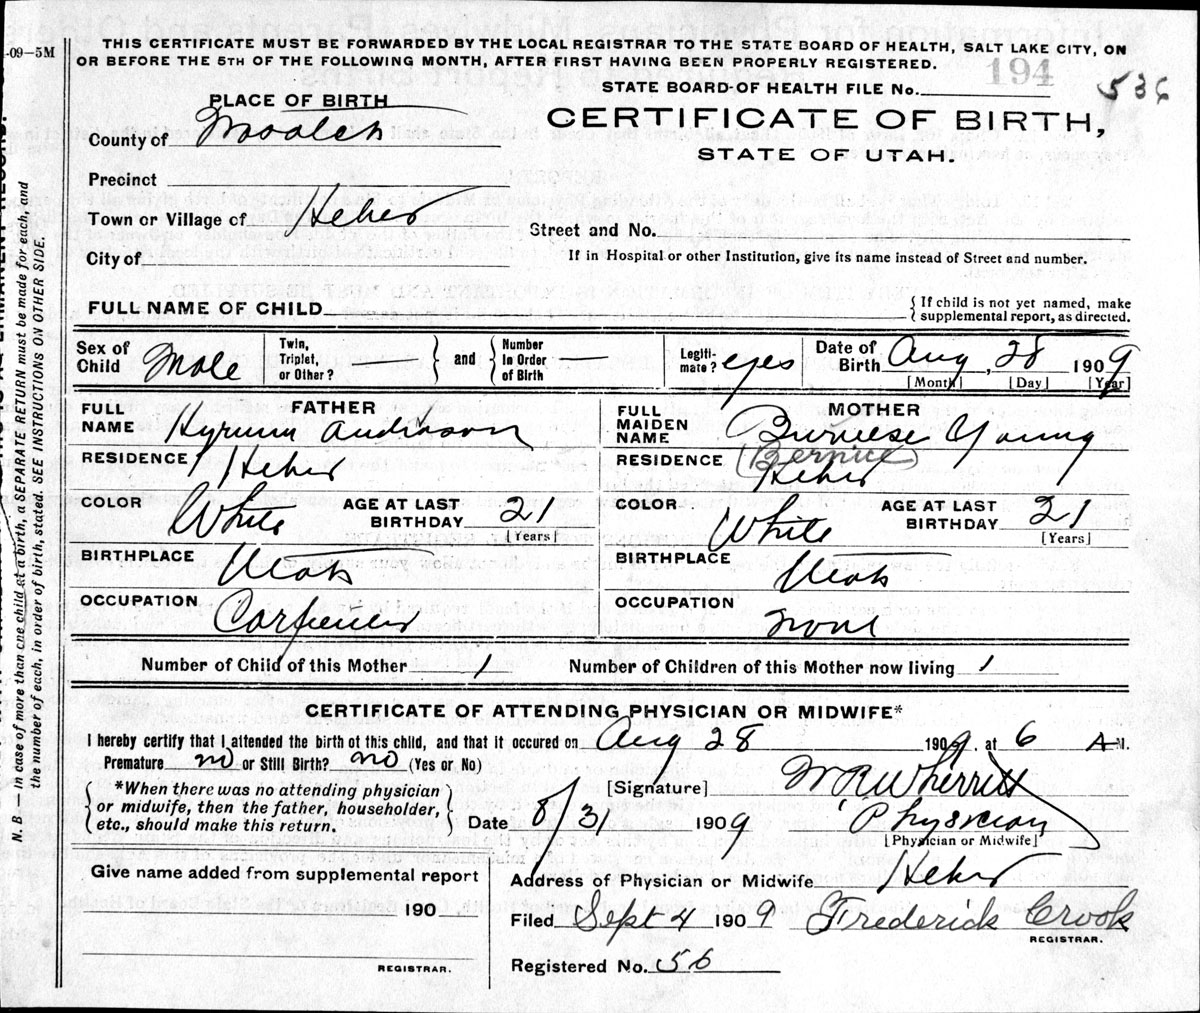 -09-5M
THIS CERTIFICATE MUST BE FORWARDED BY THE LOCAL REGISTRAR TO THE STATE BOARD OF HEALTH, SALT LAKE CITY, ON
OR BEFORE THE 5TH OF THE FOLLOWING MONTH, AFTER FIRST HAVING BEEN PROPERLY REGISTERED.
194
536
STATE BOARD OF HEALTH FILE No.
PLACE OF BIRTH
CERTIFICATE OF BIRTH,
STATE OF UTAH.
County of
Precinct
Town or Village of Heber
Street and No.
City of
If in Hospital or other Institution, give its name instead of Street and number.
FULL NAME OF CHILD
{ If child is not yet named, make
supplemental report, as directed.
Sex of Child Male
Twin, Triplet, or Other?
and
Number in Order of Birth —
Legiti-mate? yes
Date of Birth Aug 28 1909
[Month] [Day] [Year]
FATHER
FULL NAME Hyrum Anderson
RESIDENCE Heber
COLOR White
AGE AT LAST BIRTHDAY 21
[Years]
BIRTHPLACE Utah
OCCUPATION Carpenter
MOTHER
FULL MAIDEN NAME Burneese Young
(Bernice)
RESIDENCE Heber
COLOR White
AGE AT LAST BIRTHDAY 21
[Years]
BIRTHPLACE Utah
OCCUPATION None
Number of Child of this Mother 1 Number of Children of this Mother now living 1
CERTIFICATE OF ATTENDING PHYSICIAN OR MIDWIFE*
I hereby certify that I attended the birth of this child, and that it occured on Aug 28 1909, at 6 A M.
Premature no or Still Birth? no (Yes or No)
*When there was no attending physician
or midwife, then the father, householder,
etc., should make this return.
[Signature] W R Wherritt
Date 8/31 1909 Physician
[Physician or Midwife]
Give name added from supplemental report
190
REGISTRAR.
Address of Physician or Midwife Heber
Filed Sept 4 1909 Frederick Crook
REGISTRAR.
Registered No. 56
N. B.—In case of more than one child at a birth, a SEPARATE RETURN must be made for each, and
the number of each, in order of birth, stated. SEE INSTRUCTIONS ON OTHER SIDE.